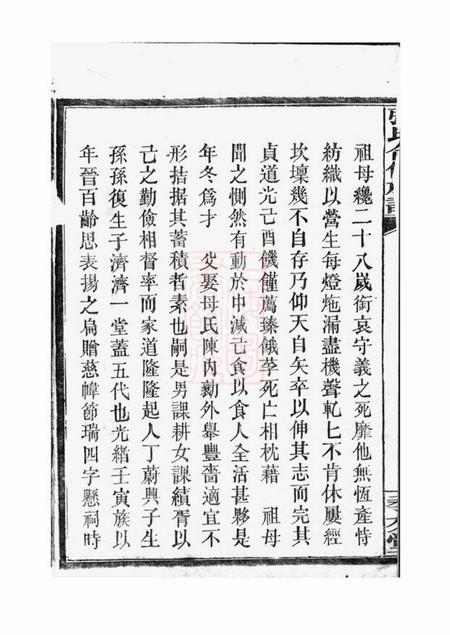 祖母纔二十八歲銜哀守義之死靡他無恆產恃
紡織以營生每燈灺漏盡機聲軋匕不肯休屢經
坎壈幾不自存乃仰天自矢卒以伸其志而完其
貞道光己酉饑僅薦臻餓莩死亡相枕藉 祖母
聞之惻然有動於中減己食以食人全活甚夥是
年冬爲才 父娶母氏陳內勷外舉豐嗇適宜不
形拮据其蓄積哲素也嗣是男課耕女課績胥以
己之勤儉相督率而家道隆隆起人丁蔚興子生
孫孫復生子濟濟一堂蓋五代也光緒壬寅族以
年晉百齡思表揚之扁贈慈幃節瑞四字懸祠時
張氏合修族譜